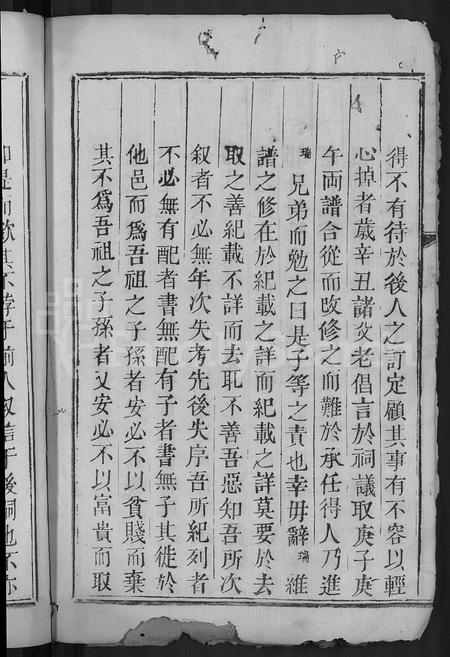 得不有待於後人之訂定顧其事有不容以輕
心掉者歲辛丑諸父老倡言於祠議取庚子庚
午両譜合從而改修之而難於承任得人乃進
瑞兄弟而勉之曰是子等之責也幸毋辭瑞維
譜之修在於紀載之詳而紀載之詳莫要於去
取之善紀載不詳而去取不善吾惡知吾所次
叙者不必無年次失考先後失序吾所紀列者
不必無有配者書無配有子者書無子其徙於
他邑而爲吾祖之子孫者安必不以貧賤而棄
其不爲吾祖之子孫者又安必不以富貴而取